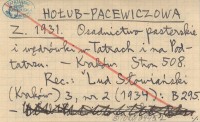 HOŁUB-PACEWICZOWA
Z. 1931. Osadnictwo pasterskie
i wędrówki w Tatrach i na Pod-
tatrzu. – Kraków Stron 508.
Rec.: "Lud Słowiański
(Kraków) 3, nr 2 (1934): B 295.